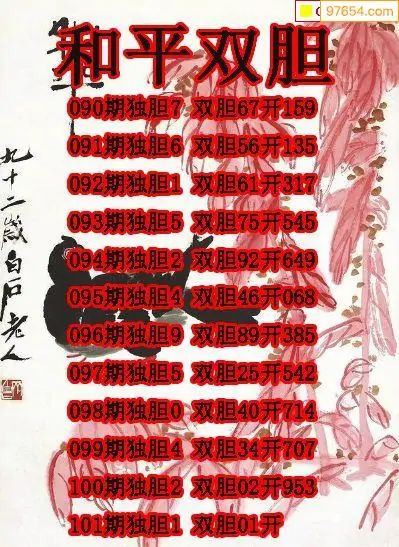 97654.com
和平双胆
090期独胆7 双胆67开159
091期独胆6 双胆56开135
092期独胆1 双胆61开317
093期独胆5 双胆75开545
094期独胆2 双胆92开649
095期独胆4 双胆46开068
096期独胆9 双胆89开385
097期独胆5 双胆25开542
098期独胆0 双胆40开714
099期独胆4 双胆34开707
100期独胆2 双胆02开953
101期独胆1 双胆01开
九十二岁白石老人